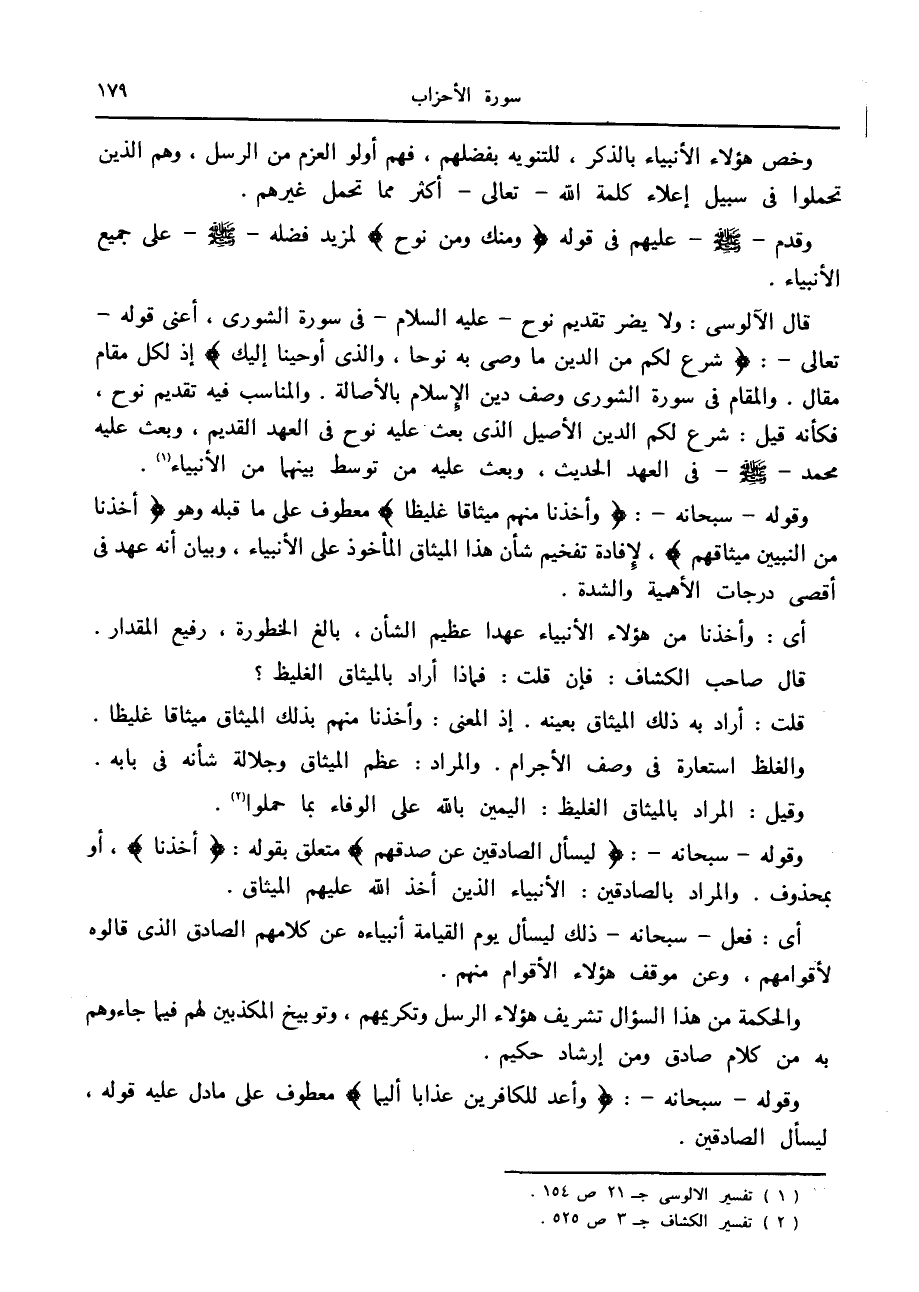 سورة الأحزاب ١٧٩
وخص هؤلاء الأنبياء بالذكر ، للتنويه بفضلهم ، فهم أولو العزم من الرسل ، وهم الذين
تحملوا فى سبيل إعلاء كلمة الله – تعالى – أكثر مما تحمل غيرهم .
وقدم – ﷺ – عليهم فى قوله ﴿ ومنك ومن نوح ﴾ لمزيد فضله – ﷺ – على جميع
الأنبياء .
قال الآلوسى : ولا يضر تقديم نوح – عليه السلام – فى سورة الشورى ، أعنى قوله –
تعالى – : ﴿ شرع لكم من الدين ما وصى به نوحا ، والذى أوحينا إليك ﴾ إذ لكل مقام
مقال . والمقام فى سورة الشورى وصف دين الإسلام بالأصالة . والمناسب فيه تقديم نوح ،
فكأنه قيل : شرع لكم الدين الأصيل الذى بعث عليه نوح فى العهد القديم ، وبعث عليه
محمد – ﷺ – فى العهد الحديث ، وبعث عليه من توسط بينهما من الأنبياء(١) .
وقوله – سبحانه – : ﴿ وأخذنا منهم ميثاقا غليظا ﴾ معطوف على ما قبله وهو ﴿ أخذنا
من النبيين ميثاقهم ﴾ ، لإفادة تفخيم شأن هذا الميثاق المأخوذ على الأنبياء ، وبيان أنه عهد فى
أقصى درجات الأهمية والشدة .
أى : وأخذنا من هؤلاء الأنبياء عهدا عظيم الشأن ، بالغ الخطورة ، رفيع المقدار .
قال صاحب الكشاف : فإن قلت : فماذا أراد بالميثاق الغليظ ؟
قلت : أراد به ذلك الميثاق بعينه . إذ المعنى : وأخذنا منهم بذلك الميثاق ميثاقا غليظا .
والغلظ استعارة فى وصف الأجرام . والمراد : عظم الميثاق وجلالة شأنه فى بابه .
وقيل : المراد بالميثاق الغليظ : اليمين بالله على الوفاء بما حملوا(٢) .
وقوله – سبحانه – : ﴿ ليسأل الصادقين عن صدقهم ﴾ متعلق بقوله : ﴿ أخذنا ﴾ ، أو
بمحذوف . والمراد بالصادقين : الأنبياء الذين أخذ الله عليهم الميثاق .
أى : فعل – سبحانه – ذلك ليسأل يوم القيامة أنبياءه عن كلامهم الصادق الذى قالوه
لأقوامهم ، وعن موقف هؤلاء الأقوام منهم .
والحكمة من هذا السؤال تشريف هؤلاء الرسل وتكريمهم ، وتوبيخ المكذبين لهم فيما جاءوهم
به من كلام صادق ومن إرشاد حكيم .
وقوله – سبحانه – : ﴿ وأعد للكافرين عذابا أليما ﴾ معطوف على مادل عليه قوله ،
ليسأل الصادقين .
( ١ ) تفسير الالوسى جـ ٢١ ص ١٥٤ .
( ٢ ) تفسير الكشاف جـ ٣ ص ٥٢٥ .